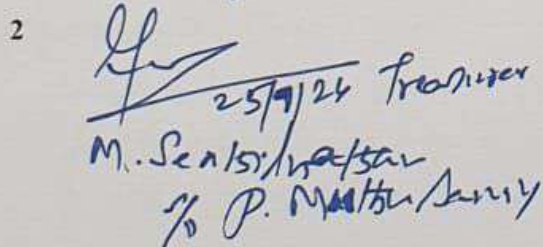 2
25/9/24 Treasurer
M. Senthilnathan
S/o P. Muthu Samy